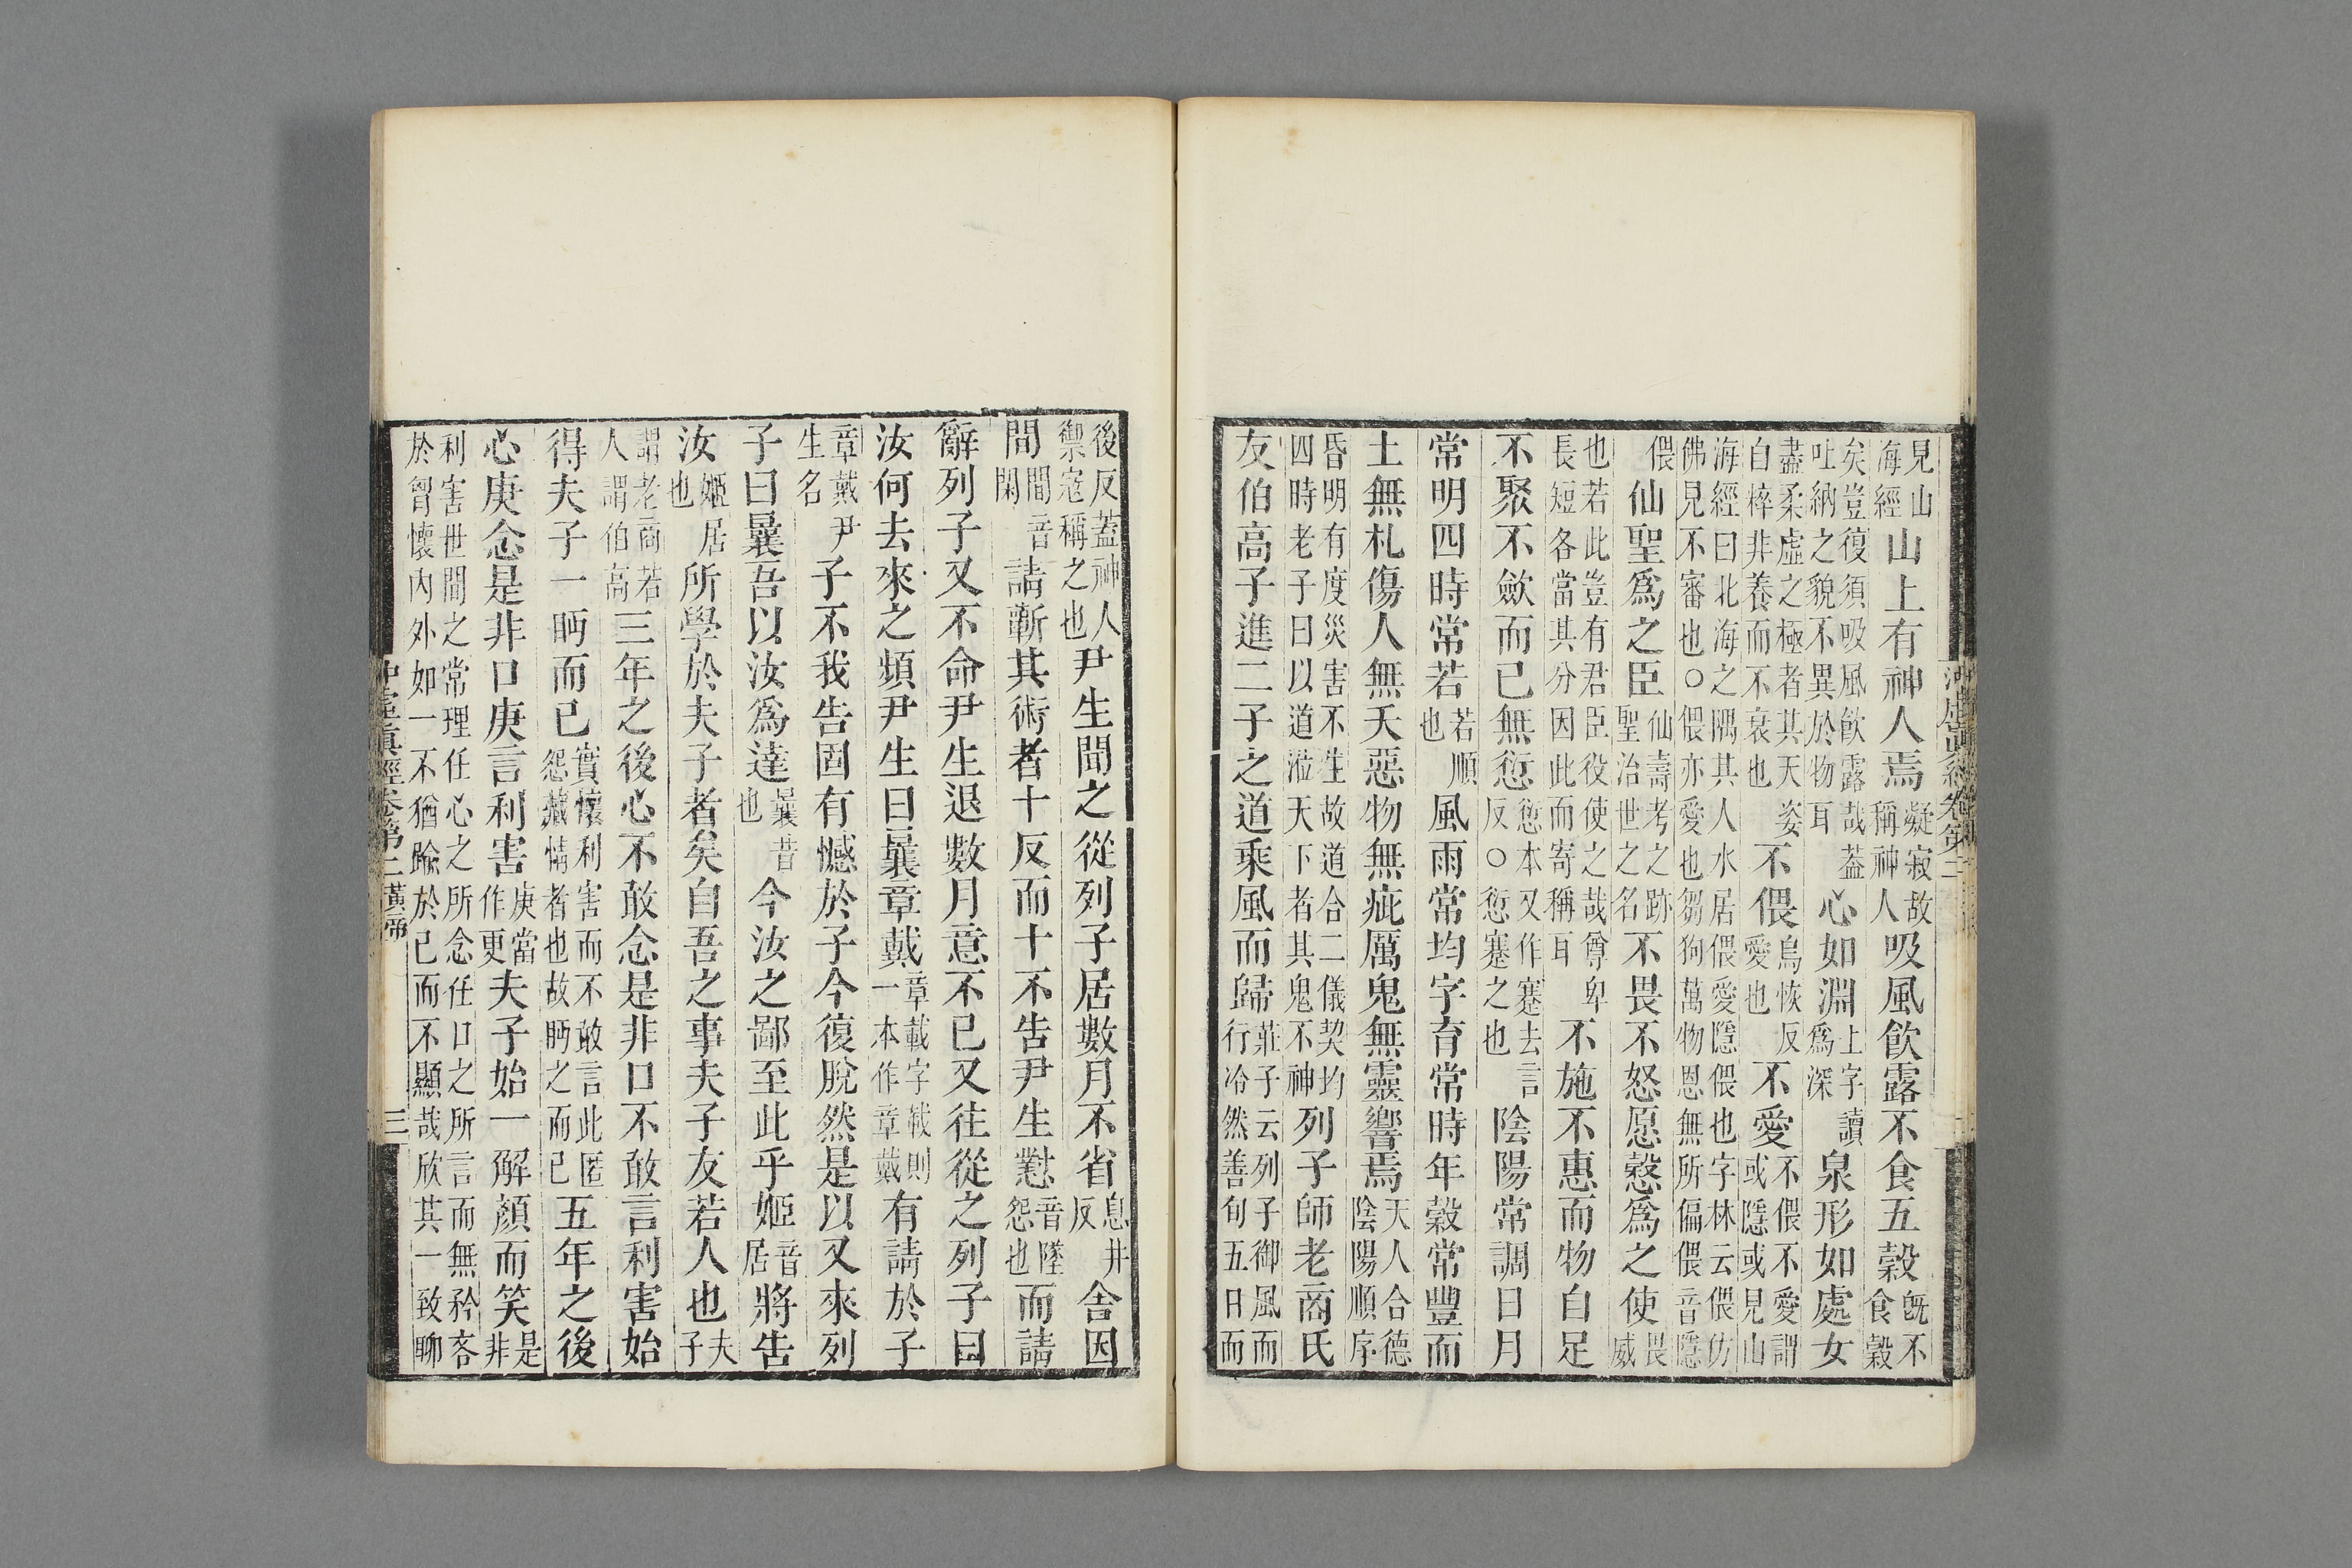 見山海經山上有神人焉凝寂故稱神人吸風飲露不食五穀既不食穀
矣豈復須吸風飲露哉葢吐納之貌不異於物耳心如淵上字讀爲深泉形如處女
盡柔虛之極者其天姿自粹非養而不衰也不偎烏恢反愛也不愛不偎不愛謂或隱或見山
海經曰北海之隅其人水居偎愛隱偎也字林云偎仿佛見不審也○偎亦愛也芻狗萬物恩無所偏偎音隱
偎仙聖爲之臣仙壽考之跡聖治世之名不畏不怒愿慤爲之使畏威
也若此豈有君臣役使之哉尊卑長短各當其分因此而寄稱耳不施不惠而物自足
不聚不歛而已無愆愆本又作蹇去言反○愆蹇之也陰陽常調日月
常明四時常若若順也風雨常均字育常時年穀常豐而
土無札傷人無夭惡物無疵厲鬼無靈響焉天人合德陰陽順序
昏明有度災害不生故道合二儀契均四時老子曰以道涖天下者其鬼不神列子師老商氏
友伯高子進二子之道乘風而歸莊子云列子御風而行冷然善旬五日而
後反葢神人禦寇稱之也尹生聞之從列子居數月不省息井反舍因
間間音閑請蘄其術者十反而十不告尹生懟音墜怨也而請
辭列子又不命尹生退數月意不已又往從之列子曰
汝何去來之頻尹生曰曩章戴章載字載則一本作章戴有請於子
章戴尹生名子不我告固有憾於子今復脫然是以又來列
子曰曩吾以汝爲達曩昔也今汝之鄙至此乎姬音居將告
汝姬居也所學於夫子者矣自吾之事夫子友若人也夫子
謂老商若人謂伯高三年之後心不敢念是非口不敢言利害始
得夫子一眄而已實懷利害而不敢言此匿怨藏情者也故眄之而已五年之後
心庚念是非口庚言利害庚當作更夫子始一解顏而笑是非
利害世間之常理任心之所念任口之所言而無矜吝於胷懷內外如一不猶踰於已而不顯哉欣其一致聊
沖虛眞經卷第二黃帝
三